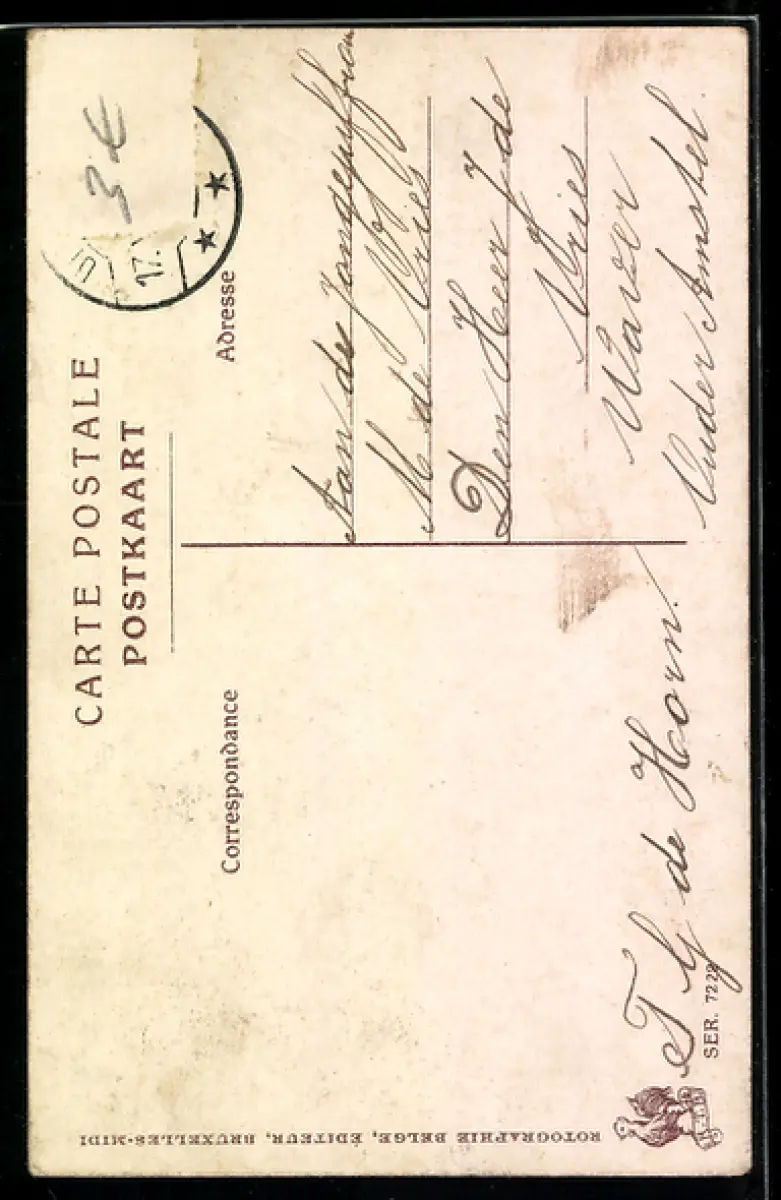 CARTE POSTALE
POSTKAART
Correspondance
Adresse
3 €
17.
Aan de Jongejuffrau
M de Vries
Den Heer J de
Vries
Waver
Ouder Amstel.
T G de Horn.
SER. 7222
ROTOGRAPHIE BELGE, ÉDITEUR, BRUXELLES-MIDI